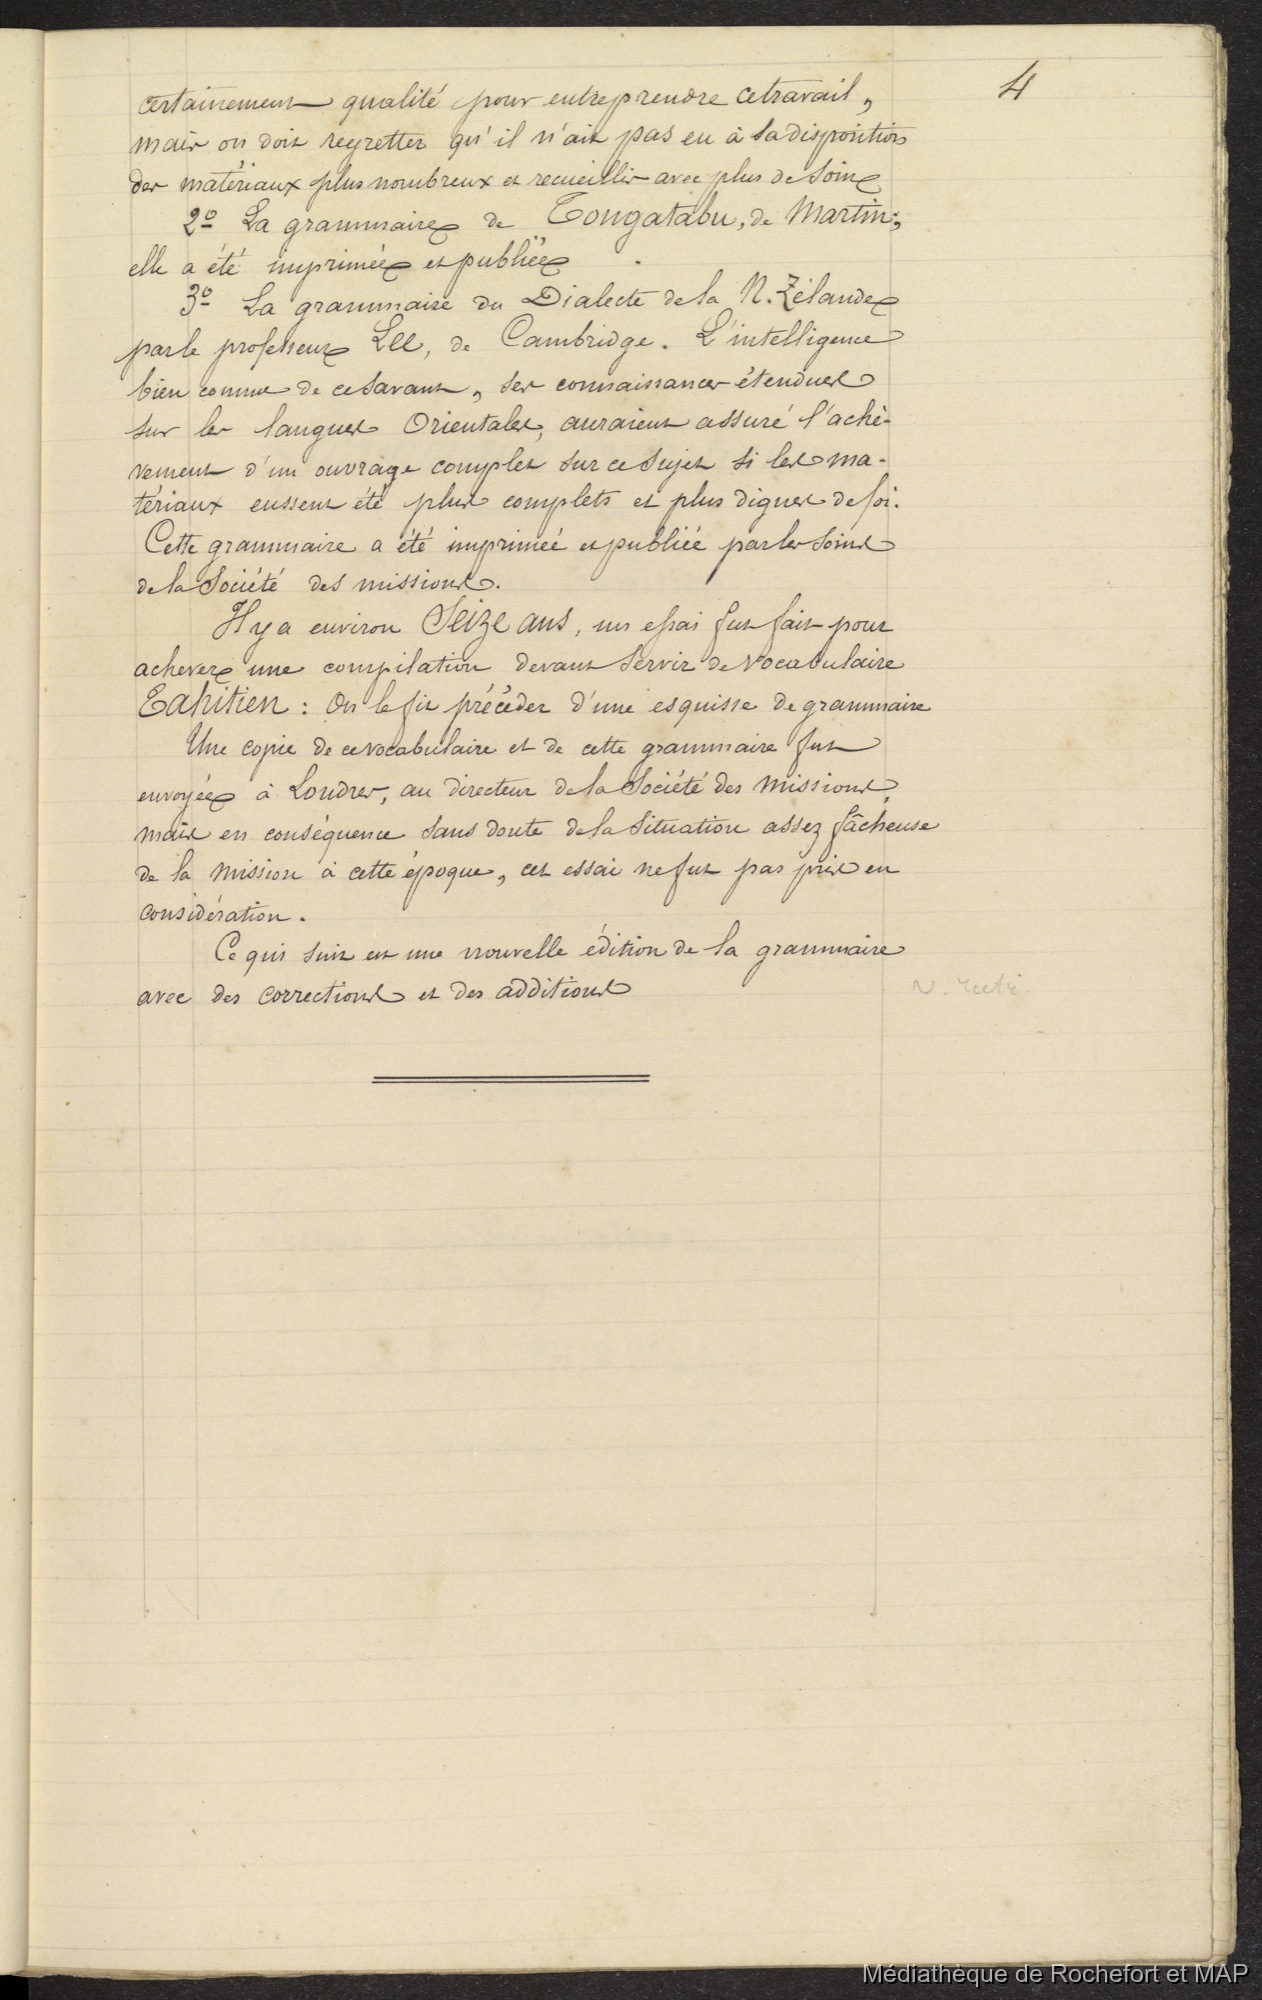 4
certainement qualité pour entreprendre ce travail,
mais on doit regretter qu'il n'ait pas eu à sa disposition
des matériaux plus nombreux et recueillis avec plus de soin
2º La grammaire de Tongatabu, de Martin;
elle a été imprimée et publiée
3º La grammaire du Dialecte de la N. Zélande
par le professeur Lee, de Cambridge. L'intelligence
bien connue de ce savant, ses connaissances étendues
sur les langues Orientales, auraient assuré l'achè-
vement d'un ouvrage complet sur ce sujet si les ma-
tériaux eussent été plus complets et plus dignes de foi.
Cette grammaire a été imprimée et publiée par les soins
de la Société des missions.
Il y a environ Seize ans, un essai fut fait pour
achever une compilation devant servir de vocabulaire
Tahitien : On le fit précéder d'une esquisse de grammaire
Une copie de ce vocabulaire et de cette grammaire fut
envoyée à Londres, au directeur de la Société des missions,
mais en conséquence sans doute de la situation assez fâcheuse
de la mission à cette époque, cet essai ne fut pas pris en
considération.
Ce qui suit est une nouvelle édition de la grammaire
avec des corrections et des additions
Médiathèque de Rochefort et MAP